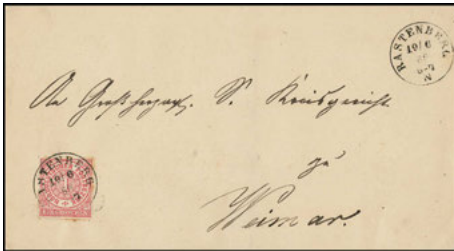 RASTENBERG
19/6
N
An Großherzog. S. Kreisgericht
zu
Weimar.
ASTENBERG
19/6